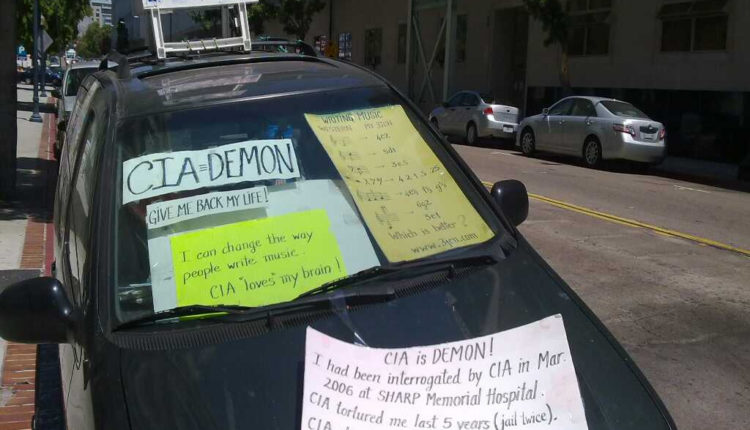 CIA=DEMON
GIVE ME BACK MY LIFE!
I can change the way
people write music.
CIA "loves" my brain!
WRITING MUSIC
WESTERN MY 3JCN
Which is better?
www.3jcn.com
CIA is DEMON!
I had been interrogated by CIA in Mar.
2006 at SHARP Memorial Hospital.
CIA tortured me last 5 years (jail twice).
CIA